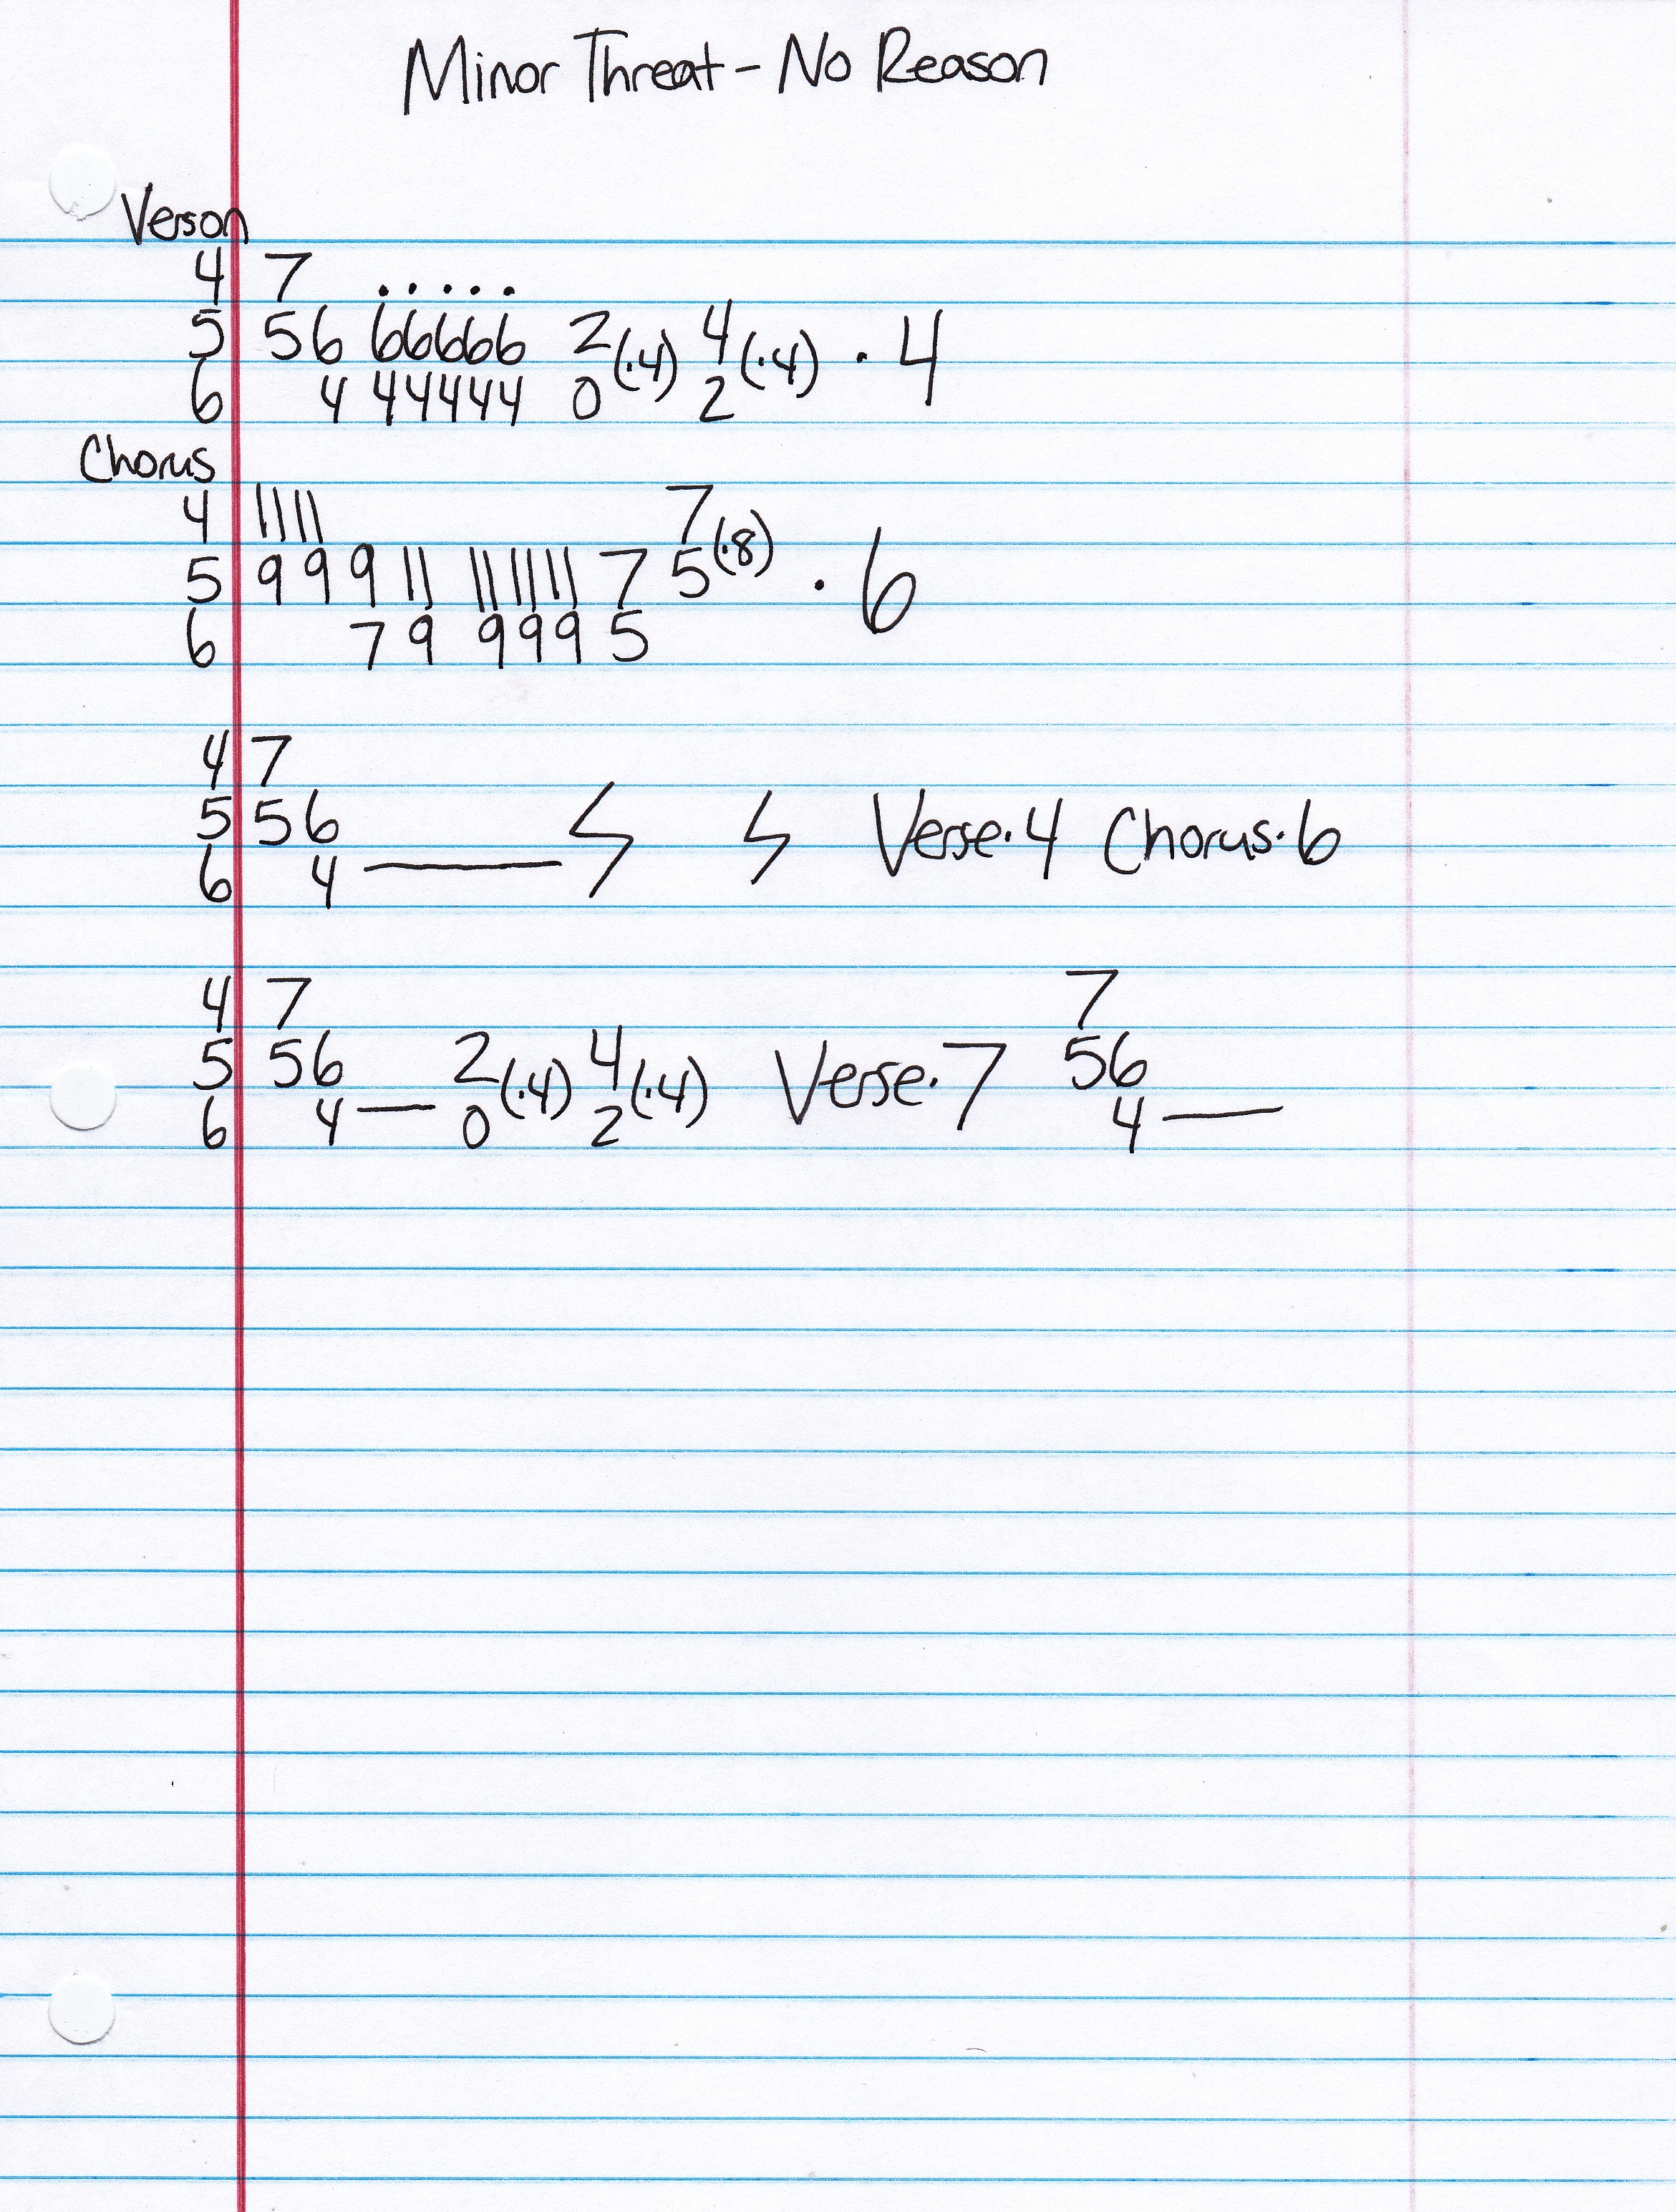 Minor Threat - No Reason
Verson
4 7 . . . . .
5 56 66666 2(·4) 4(·4) · 4
6 4 44444 0 2
Chorus
4 11 11 7
5 9 9 9 11 11 11 11 7 5(·8) · 6
6 7 9 9 9 9 5
4 7
5 56 Verse·4 Chorus·6
6 4
4 7 7
5 56 2(·4) 4(·4) Verse·7 56
6 4 0 2 4